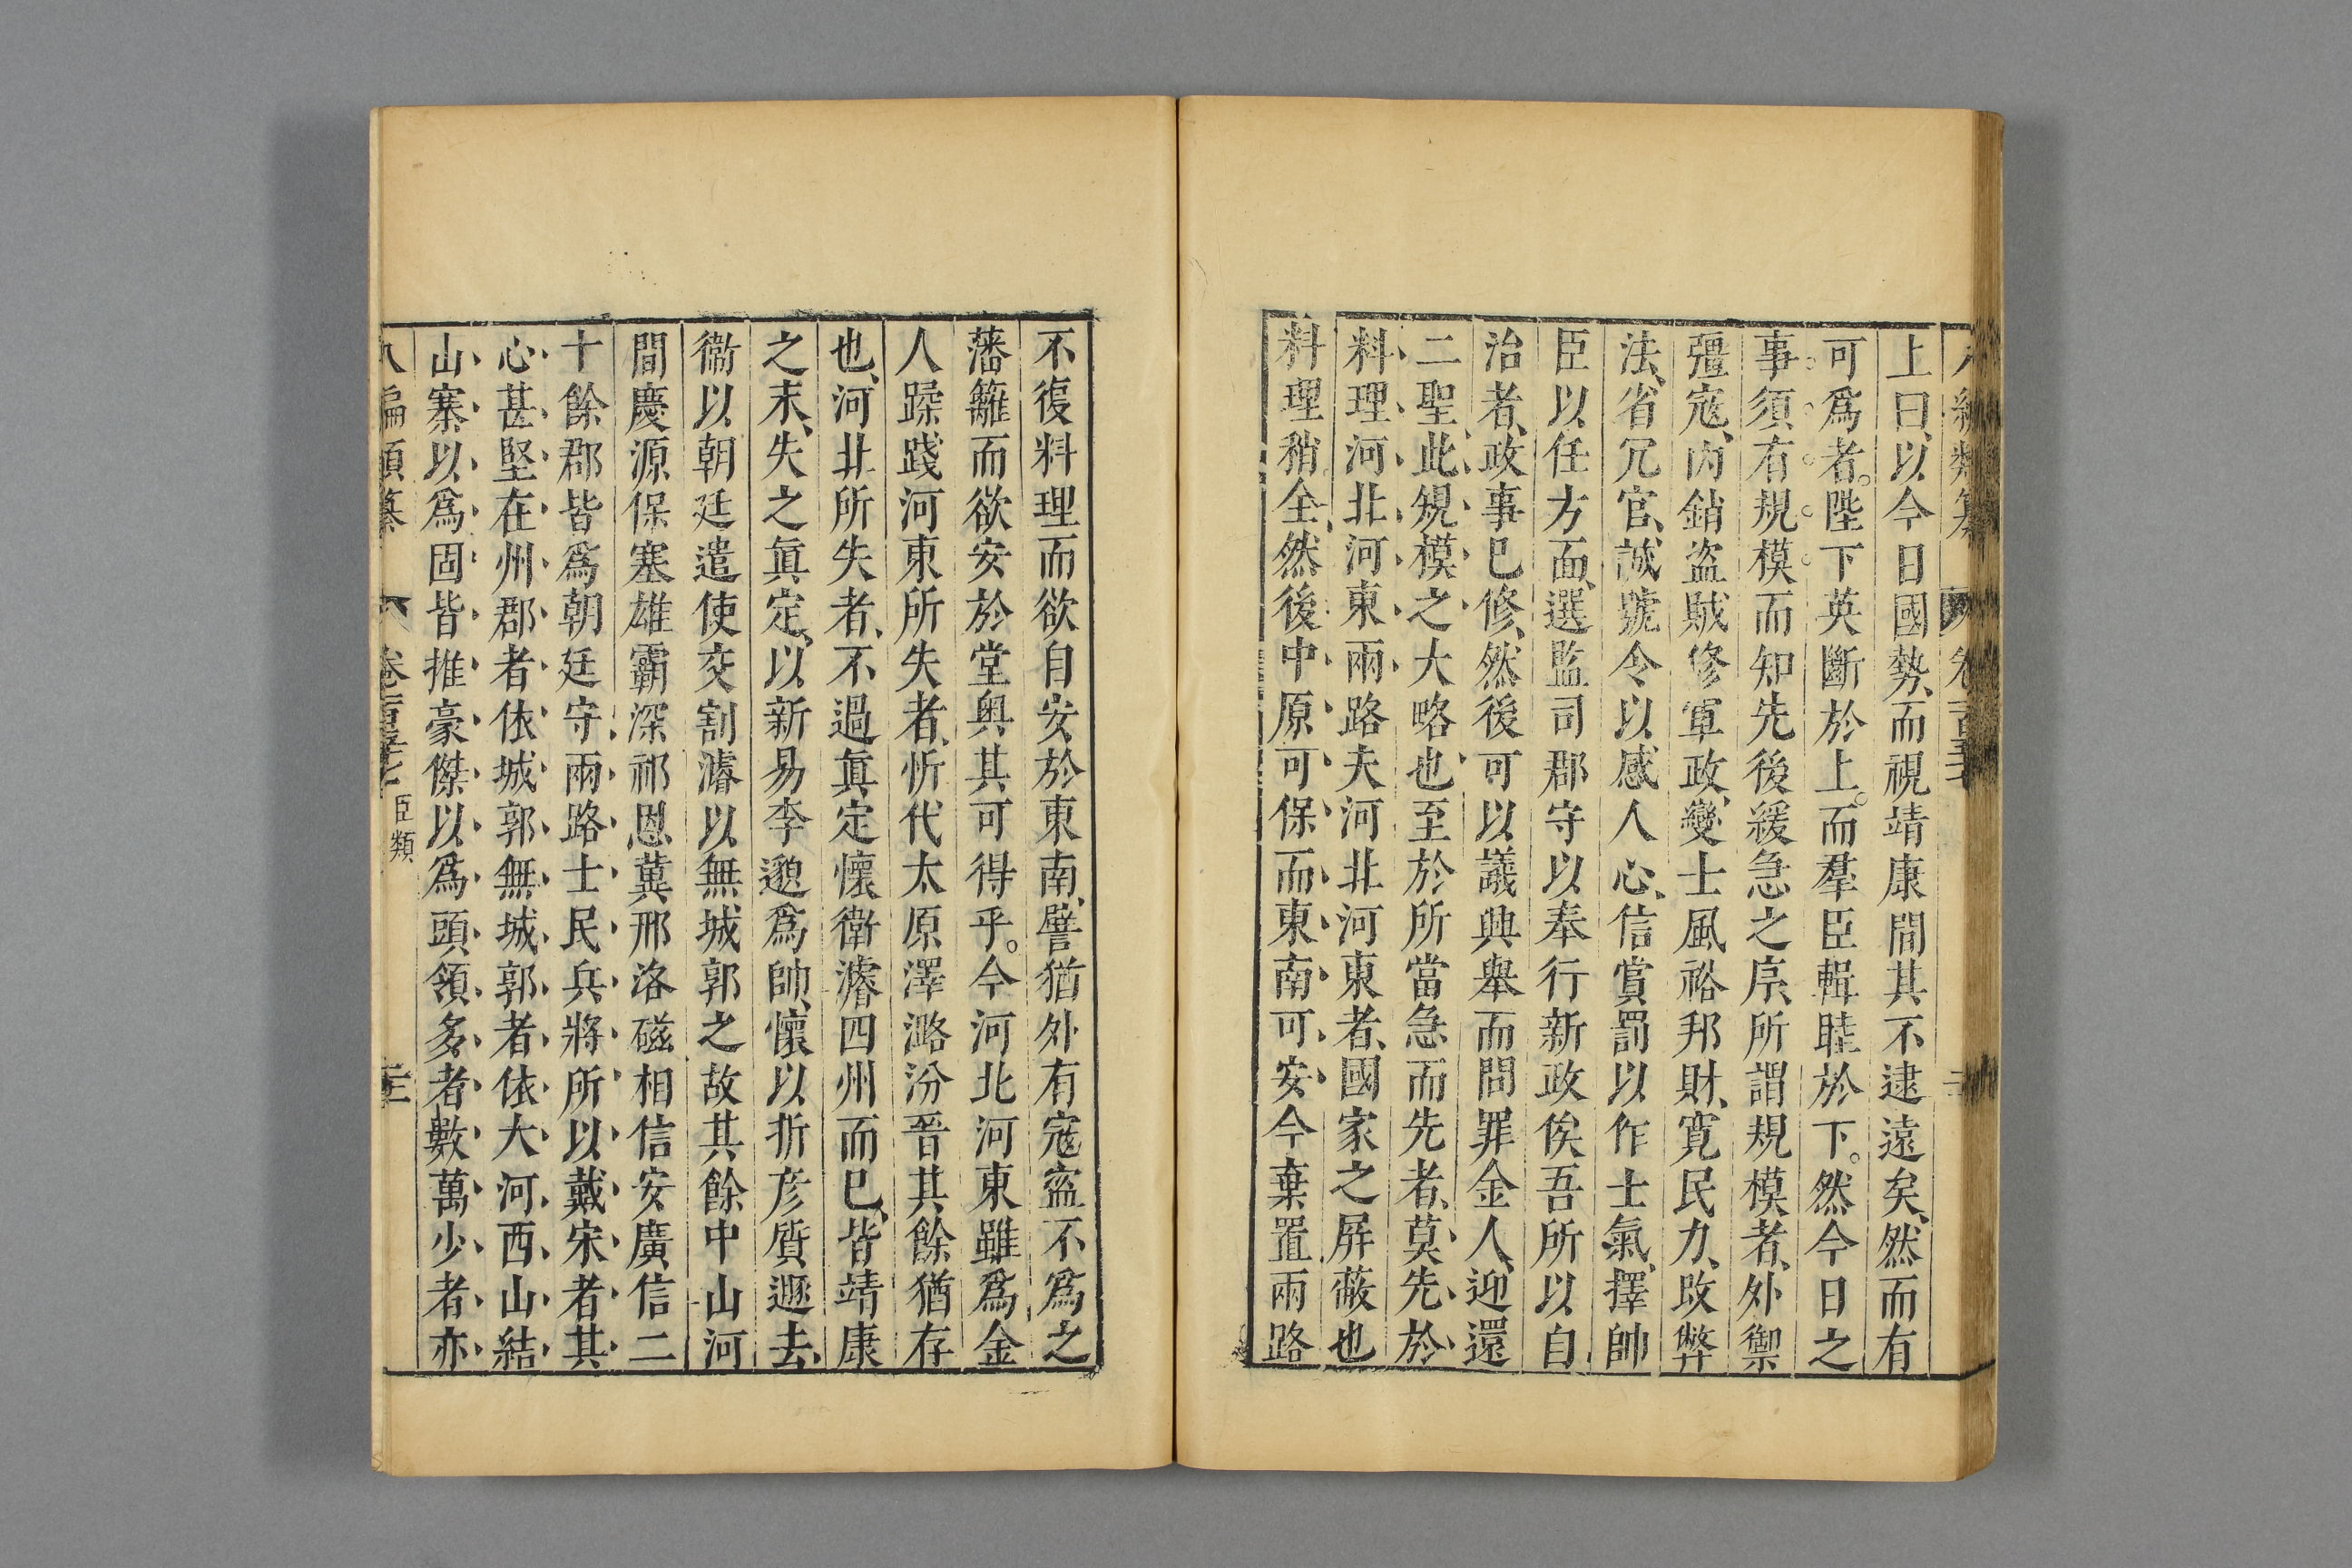 上曰以今日國勢而視靖康間其不逮遠矣然而有
可爲者陛下英斷於上而羣臣輯睦於下然今日之
事須有規模而知先後緩急之序所謂規模者外禦
彊寇內銷盜賊修軍政變士風裕邦財寬民力改弊
法省冗官誠號令以感人心信賞罰以作士氣擇帥
臣以任方面選監司郡守以奉行新政俟吾所以自
治者政事已修然後可以議興舉而問罪金人迎還
二聖此規模之大略也至於所當急而先者莫先於
料理河北河東兩路夫河北河東者國家之屏蔽也
料理稍全然後中原可保而東南可安今棄置兩路
不復料理而欲自安於東南譬猶外有寇盜不爲之
藩籬而欲安於堂奧其可得乎今河北河東雖爲金
人蹂踐河東所失者忻代太原澤潞汾晉其餘猶存
也河北所失者不過眞定懷衛濬四州而已皆靖康
之末失之眞定以新易李邈爲帥懷以折彥質遯去
衞以朝廷遣使交割濬以無城郭之故其餘中山河
間慶源保塞雄霸深祁恩冀邢洛磁相信安廣信二
十餘郡皆爲朝廷守兩路士民兵將所以戴宋者其
心甚堅在州郡者依城郭無城郭者依大河西山結
山寨以爲固皆推豪傑以爲頭領多者數萬少者亦
八編類纂 卷一百五十七 臣類 二十三